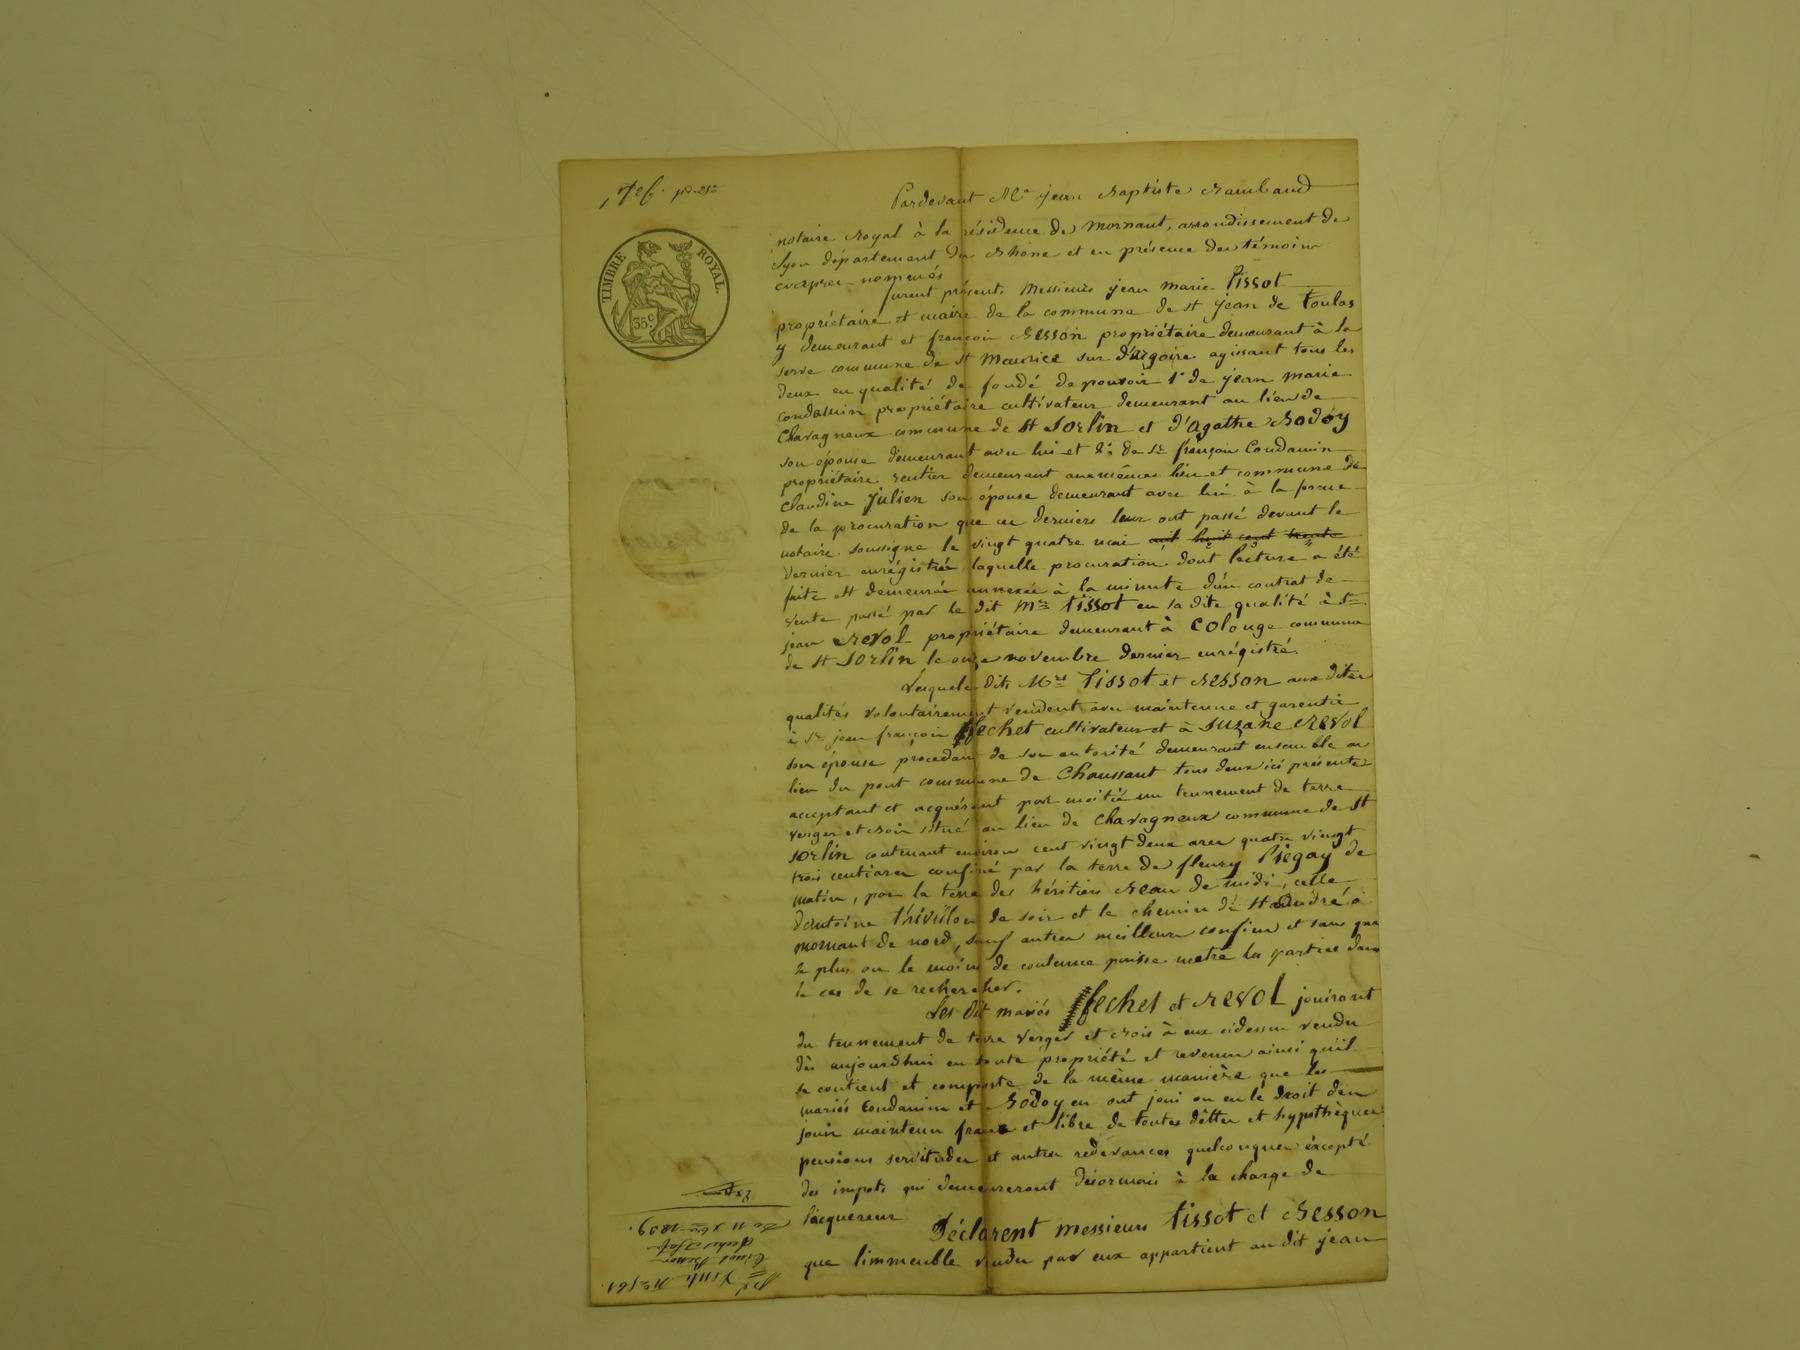 Pardevant Me jean Baptiste Rambaud
notaire Royal à la résidence de Mornant, arrondissement de
Lyon département du Rhône et en présence des témoins
ciaprès nommés
furent présents Messieurs jean marie Tissot
propriétaire et maire de la commune de st jean de Toulas
y demeurant et françois Besson propriétaire demeurant à la
serve commune de st Maurice sur d'argoire agissant tous les
deux en qualité de fondé de pouvoir 1° de jean marie
condamin propriétaire cultivateur demeurant au lieu de
Chavagneux commune de st Sorlin et d'Agathe Bodoy
son épouse demeurant avec lui et 2° de Sr françois Condamin
propriétaire rentier demeurant aux mêmes lieu et commune de
Claudine Julien son épouse demeurant avec lui à la forme
de la procuration que ces derniers leur ont passé devant le
notaire soussigné le vingt quatre mai mil huit cent trente
dernier enrégistrée laquelle procuration dont lecture a été
faite est demeurée annexée à la minute d'un contrat de
vente passé par le dit Mr Tissot en sa dite qualité à Sr
jean Revol propriétaire demeurant à Colonge commune
de st Sorlin le onze novembre dernier enrégistré.
Lesquels dits Mrs Tissot et Besson aux dites
qualités volontairement vendent avec maintenue et garentie
à Sr jean françois fechet cultivateur et à Suzane Revol
son épouse procédant de son autorité demeurant ensemble au
lieu du pont commune de Chaussant tous deux ici présents
acceptant et acquérant par moitié un tennement de terre
verger et bois situé au lieu de Chavagneux commune de st
Sorlin contenant environ cent vingt deux ares quatre vingt
trois centiares confiné par la terre de fleury Piegay de
matin, par la terre des héritiers Beau de midi, celle
d'antoine Thivillon de soir et le chemin de st andré à
mornant de nord, sauf autres meilleurs confins et sans que
le plus ou le moins de contenue puisse metre les parties dans
le cas de se rechercher.
Les dit mariés fechet et Revol jouiront
du tennement de terre verger et bois à eux cidessus vendu
dès aujourd'hui en toute propriété et revenu ainsi qu'il
se contient et comporte de la même manière que les
mariés Condamin et Bodoy en ont joui ou eu le droit d'en
jouir maintenu franc et libre de toutes dettes et hypothèques
pensions servitudes et autres redevances quelconques éxcepté
des impots qui demeureront désormais à la charge de
l'acquereur
Déclarent messieurs Tissot et Besson
que l'immeuble vendu par eux appartient au dit jean
TIMBRE ROYAL.
35c
Du 11 Xbre 1839.
Vente No 561.